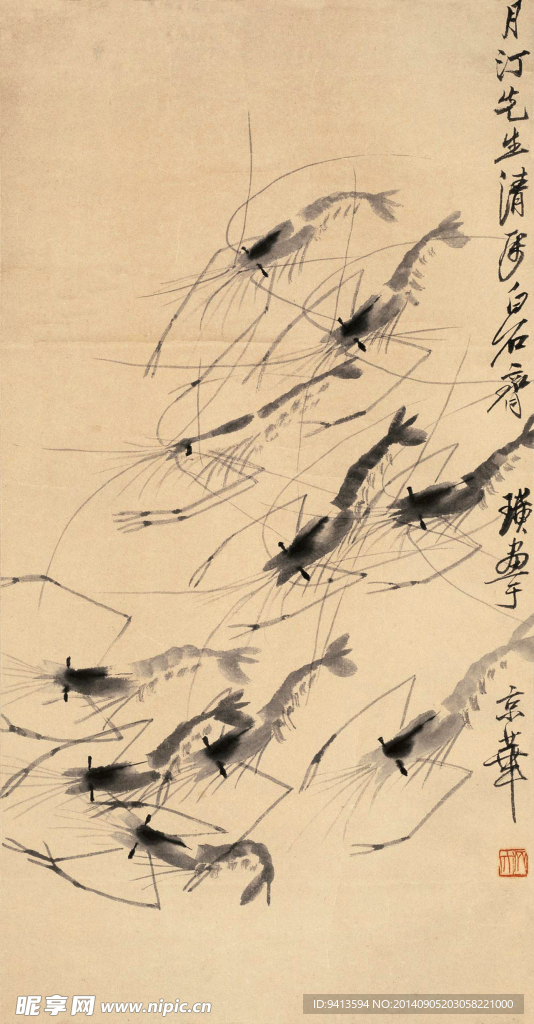 月汀先生清属白石齊
璜画于
京華
昵享网 www.nipic.cn
ID:9413594 NO:20140905203058221000